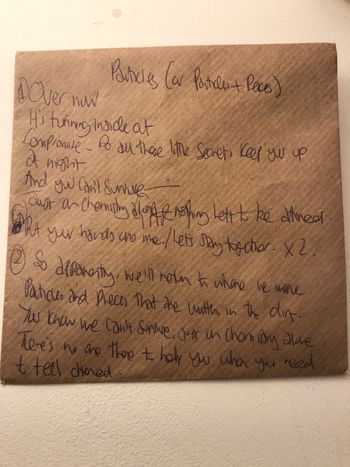 Particles (or Particles + Pieces)
① Over now
It's turning inside out
Compromise - Do all these little secrets keep you up
at night
And you can't survive
Just on chemistry alone nothing left to be
Put your hands on me / let's stay together. x 2.
② So apparently, we'll return to where we were
Particles and pieces that are written in the dirt.
You know we can't survive, just on chemistry alone
There's no one there to help you when you need
to